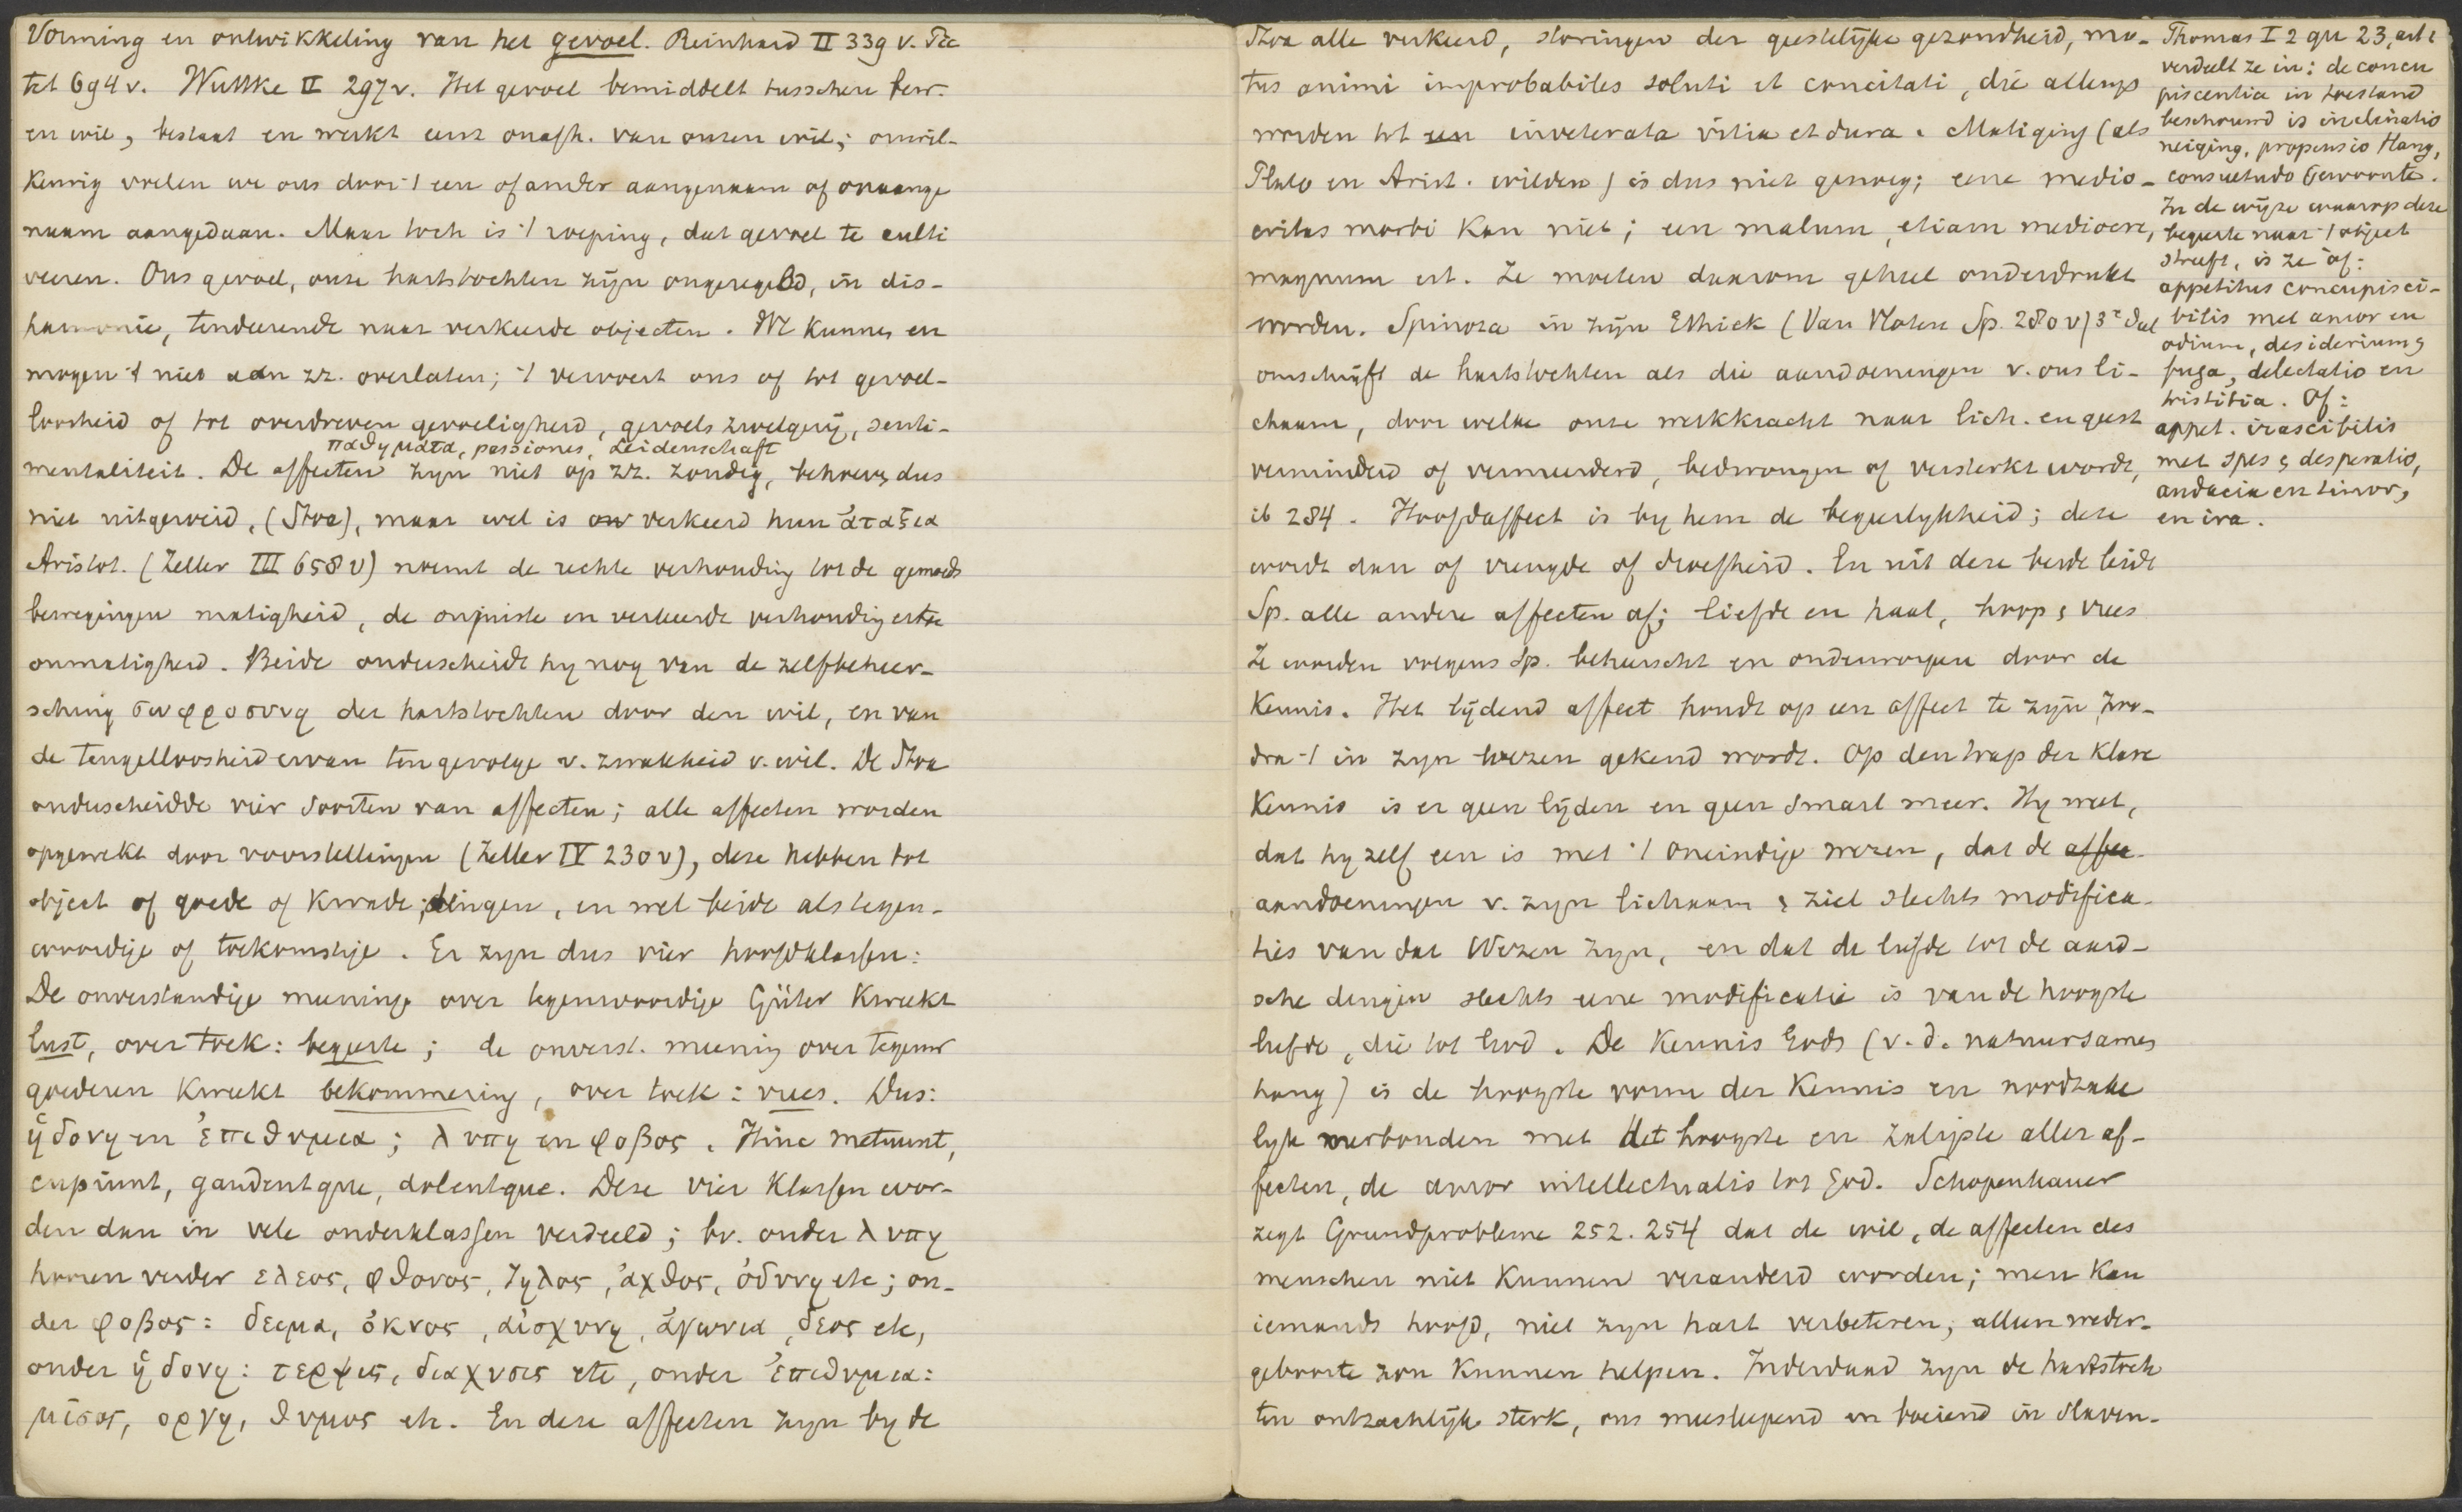 Vorming en ontwikkeling van het gevoel. Reinhard II 339 v. Pie
tet 694 v. Wuttke II 297 v. Het gevoel bemiddelt tusschen bew.
en wil, bestaat en werkt eerst onafh. van onzen wil; onwil-
keurig voelen we ons door 't een of ander aangenaam of onaange
naam aangedaan. Maar toch is 't roeping, dat gevoel te culti
veeren. Ons gevoel, onze hartstochten zijn ongeregeld, in dis-
harmonie, tenderende naar verkeerde objecten. We kunnen en
mogen 't niet aan zz. overlaten; 't vervoert ons of tot gevoel-
loosheid of tot overdreven gevoeligheid, gevoelszwelgerij, senti-
παθηματα, passiones, Leidenschaft
mentaliteit. De affecten zijn niet op zz. zondig, behoeven dus
niet uitgeroeid, (Stoa), maar wel is verkeerd hun ἀταξια
Aristot. (Zeller III 658 v) noemt de rechte verhouding tot de gemoeds
bewegingen matigheid, de onjuiste en verkeerde verhouding ertoe
onmatigheid. Beide onderscheidt hy nog van de zelfbeheer-
sching σωφροσυνη der hartstochten door den wil, en van
de teugelloosheid ervan tengevolge v. zwakheid v. wil. De Stoa
onderscheidde vier soorten van affecten; alle affecten worden
opgewekt door voorstellingen (Zeller IV 230 v), deze hebben tot
object of goede of kwade dingen, en wel beide als tegen-
woordige of toekomstige. Er zyn dus vier hoofdklassen:
De onverstandige meening over tegenwoordige Güter kweekt
lust, over toek: begeerte; de onverst. meening over tegenw
goederen kweekt bekommering, over toek: vrees. Dus:
ἡδονη en ἐπιθυμια; λυπη en φοβος. Hinc metuunt,
cupiunt, gaudentque, dolentque. Deze vier klassen wor-
den dan in vele onderklassen verdeeld; bv. onder λυπη
hooren verder ελεος, φθονος, ζηλος, ἀχθος, ὀδυνη etc; on-
der φοβος: δειμα, ὀκνος, αἰσχυνη, ἀγωνια, δεος etc,
onder ἡδονη: τερψις, διαχυσις etc, onder ἐπιθυμια:
μισος, οργη, θυμος etc. En deze affecten zyn by de
Stoa alle verkeerd, storingen der geestelijke gezondheid, mo-
tus animi improbabiles soluti et concitati, die allengs
worden tot een inveterata vitia et dura. Matiging (als
Plato en Arist. wilden) is dus niet genoeg; eene medio-
critas morbi kan niet; een malum, etiam mediocre,
magnum est. Ze moeten daarom geheel onderdrukt
worden. Spinoza in zijn Ethiek (Van Vloten Sp. 280 v) 3e deel
omschrijft de hartstochten als die aandoeningen v. ons li-
chaam, door welke onze werkkracht naar lich. en geest
verminderd of vermeerderd, bedwongen of versterkt wordt,
ib 284. Hoofdaffect is by hem de begeerlykheid; deze
wordt dan of vreugde of droefheid. En uit deze beide leidt
Sp. alle andere affecten af; liefde en haat, hoop & vrees
Ze worden volgens Sp. beheerscht en onderworpen door de
Kennis. Het lijdend affect houdt op een affect te zijn, zoo-
dra 't in zyn wezen gekend wordt. Op den trap der klare
Kennis is er geen lijden en geen smart meer. Hy weet,
dat hy zelf een is met 't oneindige wezen, dat de affec-
aandoeningen v. zyn lichaam & ziel slechts modifica-
ties van dat Wezen zyn, en dat de liefde tot de aard-
sche dingen slechts eene modificatie is van de hoogste
liefde, die tot God. De Kennis Gods (v. d. natuursamen
hang) is de hoogste vorm der Kennis en noodzake
lyk verbonden met het hoogste en zaligste aller af-
fecten, de amor intellectualis tot God. Schopenhauer
zegt Grundprobleme 252. 254 dat de wil, de affecten des
menschen niet kunnen veranderd worden; men kan
iemands hoofd, niet zyn hart verbeteren; alleen weder-
geboorte zou kunnen helpen. Inderdaad zyn de hartstoch
ten ontzachlijk sterk, ons meeslepend en boeiend in slaven-
Thomas I 2 qu 23, art 1
verdeelt ze in: de concu
piscentia in toestand
beschouwd is inclinatio
neiging, propensio Hang,
consuetudo Gewoonte.
In de wijze waarop deze
begeerte naar 't object
streeft, is ze óf:
appetitus concupisci-
bilis met amor en
odium, desiderium &
fuga, delectatio en
tristitia. Of:
appet. irascibilis
met spes & desperatio,
audacia en timor,
en ira.